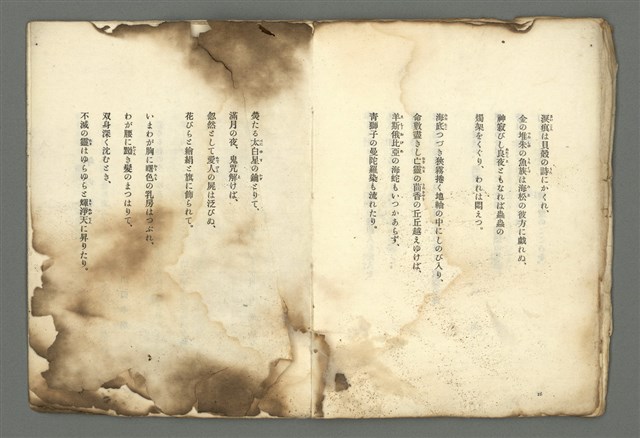 涙痕は貝殻の詩にかくれ、
金の堆朱の魚族は海松の彼方に戯れぬ、
神寂びし良夜ともなれば蟲蟲の
燭架をくぐり、われは悶えつ。
海底つづき狭霧捲く地軸の中にしのび入り、
命數盡きし亡靈の茴香の丘丘越えゆけば、
羊斯俄比亞の海蛇もいつかあらず、
青獅子の曼陀羅染も流れたり。
煢たる太白星の鏽とりて、
滿月の夜、鬼咒解けば、
忽然として愛人の屍は泛びぬ、
花びらと繪絹と旗に飾られて。
いまわが胸に曙色の乳房はつぶれ、
わが腰に髪のまつはりて、
双身深く沈むとき、
不滅の靈はゆらゆらと輝淨天に昇りたり。